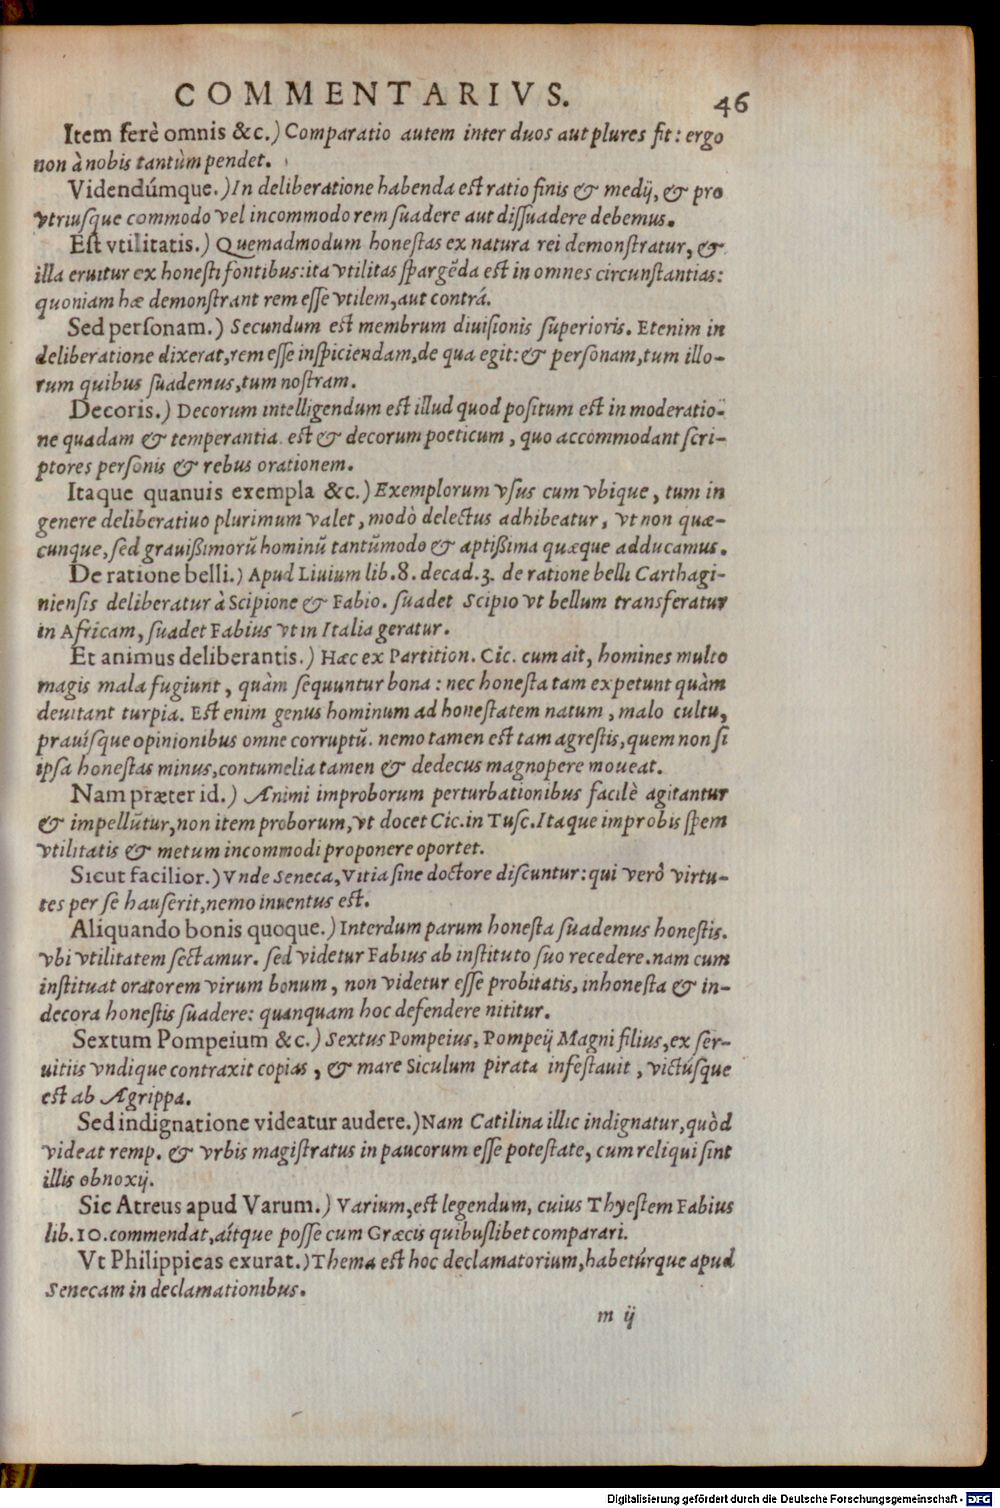 COMMENTARIVS. 46
Item ferè omnis &c.) Comparatio autem inter duos aut plures fit: ergo
non à nobis tantùm pendet.
Videndúmque.) In deliberatione habenda est ratio finis & medij, & pro
vtriusque commodo vel incommodo rem suadere aut dissuadere debemus.
Est vtilitatis.) Quemadmodum honestas ex natura rei demonstratur, &
illa eruitur ex honesti fontibus: ita vtilitas spargẽda est in omnes circunstantias:
quoniam hæ demonstrant rem esse vtilem, aut contrá.
Sed personam.) Secundum est membrum diuisionis superioris. Etenim in
deliberatione dixerat, rem esse inspiciendam, de qua egit: & personam, tum illo-
rum quibus suademus, tum nostram.
Decoris.) Decorum intelligendum est illud quod positum est in moderatio-
ne quadam & temperantia. est & decorum poeticum, quo accommodant scri-
ptores personis & rebus orationem.
Itaque quanuis exempla &c.) Exemplorum vsus cum vbique, tum in
genere deliberatiuo plurimum valet, modò delectus adhibeatur, vt non quæ-
cunque, sed grauißimorũ hominũ tantũmodo & aptißima quæque adducamus.
De ratione belli.) Apud Liuium lib. 8. decad. 3. de ratione belli Carthagi-
niensis deliberatur à Scipione & Fabio. suadet Scipio vt bellum transferatur
in Africam, suadet Fabius vt in Italia geratur.
Et animus deliberantis.) Hæc ex Partition. Cic. cum ait, homines multo
magis mala fugiunt, quàm sequuntur bona: nec honesta tam expetunt quàm
deuitant turpia. Est enim genus hominum ad honestatem natum, malo cultu,
prauísque opinionibus omne corruptũ. nemo tamen est tam agrestis, quem non si
ipsa honestas minus, contumelia tamen & dedecus magnopere moueat.
Nam præter id.) Animi improborum perturbationibus facilè agitantur
& impellũtur, non item proborum, vt docet Cic. in Tusc. Itaque improbis spem
vtilitatis & metum incommodi proponere oportet.
Sicut facilior.) Vnde Seneca, Vitia sine doctore discuntur: qui verò virtu-
tes per se hauserit, nemo inuentus est.
Aliquando bonis quoque.) Interdum parum honesta suademus honestis.
vbi vtilitatem sectamur. sed videtur Fabius ab instituto suo recedere. nam cum
instituat oratorem virum bonum, non videtur esse probitatis, inhonesta & in-
decora honestis suadere: quanquam hoc defendere nititur.
Sextum Pompeium &c.) Sextus Pompeius, Pompeij Magni filius, ex ser-
uitiis vndique contraxit copias, & mare Siculum pirata infestauit, victúsque
est ab Agrippa.
Sed indignatione videatur audere.) Nam Catilina illic indignatur, quòd
videat remp. & vrbis magistratus in paucorum esse potestate, cum reliqui sint
illis obnoxij.
Sic Atreus apud Varum.) Varium, est legendum, cuius Thyestem Fabius
lib. 10. commendat, aítque posse cum Græcis quibuslibet comparari.
Vt Philippicas exurat.) Thema est hoc declamatorium, habetúrque apud
Senecam in declamationibus.
m ij
Digitalisierung gefördert durch die Deutsche Forschungsgemeinschaft - DFG